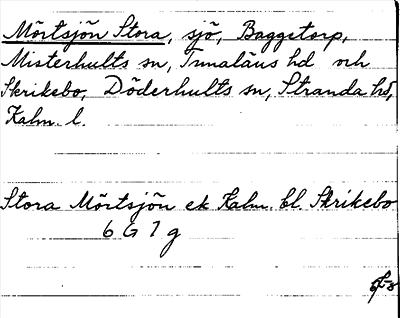 Mörtsjön Stora, sjö, Baggetorp,
Misterhults sn, Tunaläns hd och
Skrikebo, Döderhults sn, Stranda hd,
Kalm. l.
Stora Mörtsjön ek Kalm. bl. Skrikebo
6 G 7 g